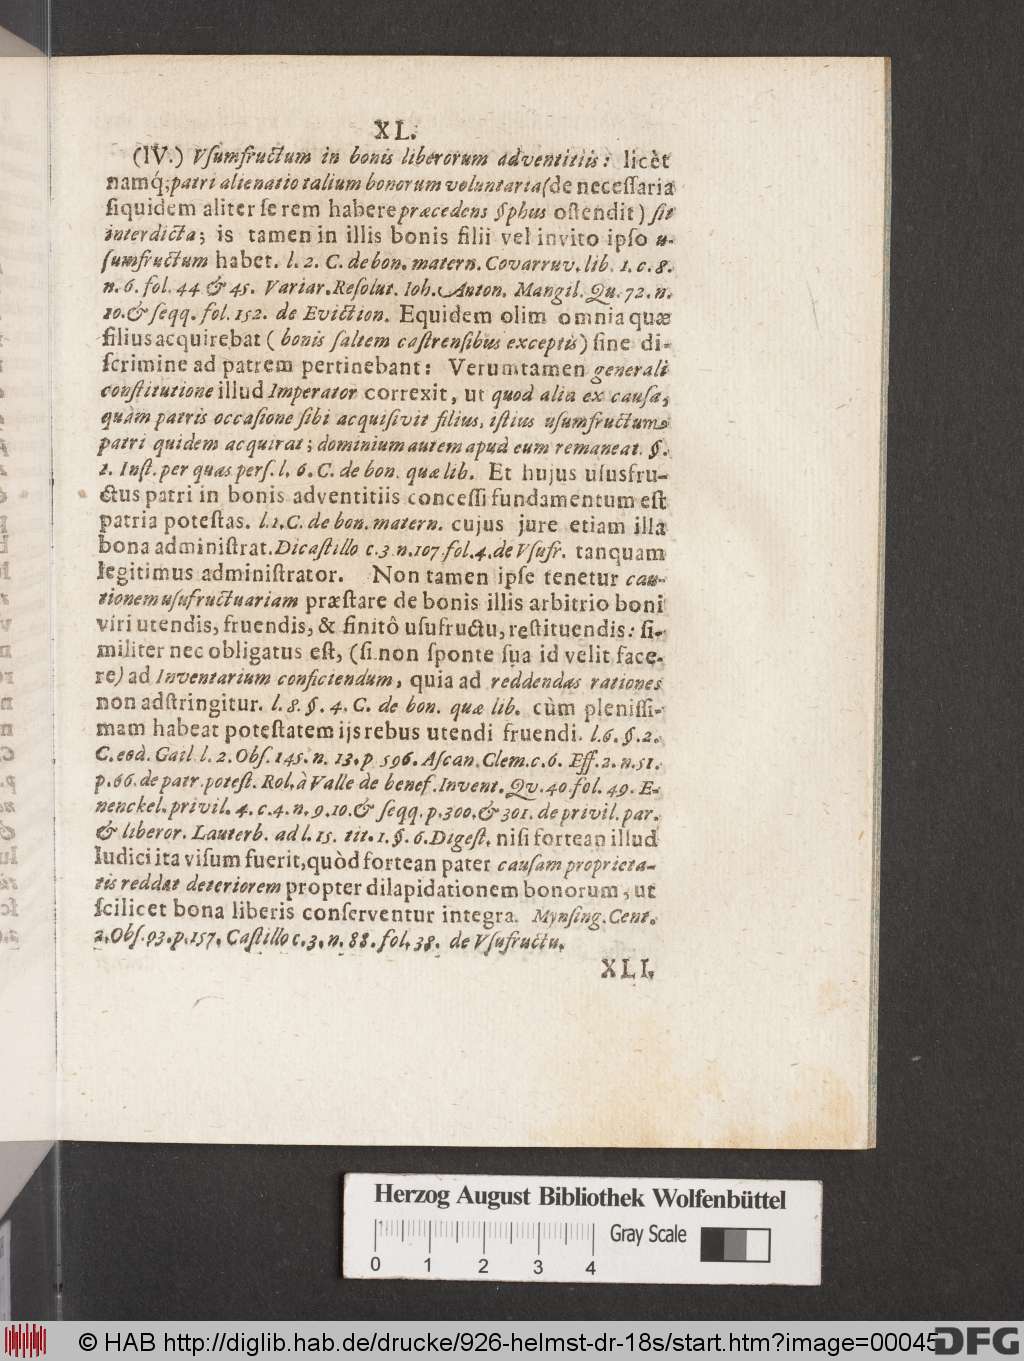 XL.
(IV.) Vſumfructum in bonis liberorum adventitiis: licèt
namq́;patri alienatio talium bonorum voluntaria(de neceſſaria
ſiquidem aliter ſe rem habere præcedens §phus oſtendit) ſit
interdicta; is tamen in illis bonis filii vel invito ipſo u-
ſumfructum habet. l. 2. C. de bon. matern. Covarruv. lib. 1. c. 8.
n. 6. fol. 44 & 45. Variar. Reſolut. Ioh. Anton. Mangil. Qu. 72. n.
10. & ſeqq. fol. 152. de Eviction. Equidem olim omnia quæ
filius acquirebat ( bonis ſaltem caſtrenſibus exceptis) ſine di-
ſcrimine ad patrem pertinebant: Verumtamen generali
conſtitutione illud Imperator correxit, ut quod alia ex cauſa,
quàm patris occaſione ſibi acquiſivit filius, iſtius uſumfructum
patri quidem acquirat; dominium autem apud eum remaneat. §.
1. Inſt. per quas perſ. l. 6. C. de bon. quæ lib. Et hujus uſusfru-
ctus patri in bonis adventitiis conceſſi fundamentum eſt
patria poteſtas. l. 1. C. de bon. matern. cujus jure etiam illa
bona adminiſtrat. Dicaſtillo c. 3 n. 107. fol. 4. de Vſufr. tanquam
legitimus adminiſtrator. Non tamen ipſe tenetur cau-
tionem uſufructuariam præſtare de bonis illis arbitrio boni
viri utendis, fruendis, & finitô uſufructu, reſtituendis: ſi-
militer nec obligatus eſt, (ſi non ſponte ſua id velit face-
re) ad Inventarium conficiendum, quia ad reddendas rationes
non adſtringitur. l. 8. §. 4. C. de bon. quæ lib. cùm pleniſſi-
mam habeat poteſtatem ijs rebus utendi fruendi. l. 6. §. 2.
C. eod. Gail l. 2. Obſ. 145. n. 13. p 596. Aſcan. Clem. c. 6. Eff. 2. n. 51.
p. 66. de patr. poteſt. Rol. à Valle de benef. Invent. Qv. 40. fol. 49. E-
nenckel. privil. 4. c. 4. n. 9. 10. & ſeqq. p. 300. & 301. de privil. par.
& liberor. Lauterb. ad l. 15. tit. 1. §. 6. Digeſt. niſi fortean illud
Iudici ita viſum fuerit, quòd fortean pater cauſam proprieta-
tis reddat deteriorem propter dilapidationem bonorum, ut
ſcilicet bona liberis conſerventur integra. Mynſing. Cent.
2. Obſ. 93. p. 157. Caſtillo c. 3. n. 88. fol. 38. de Vſufructu.
XLI.
Herzog August Bibliothek Wolfenbüttel
Gray Scale
0 1 2 3 4
© HAB http://diglib.hab.de/drucke/926-helmst-dr-18s/start.htm?image=00045
DFG